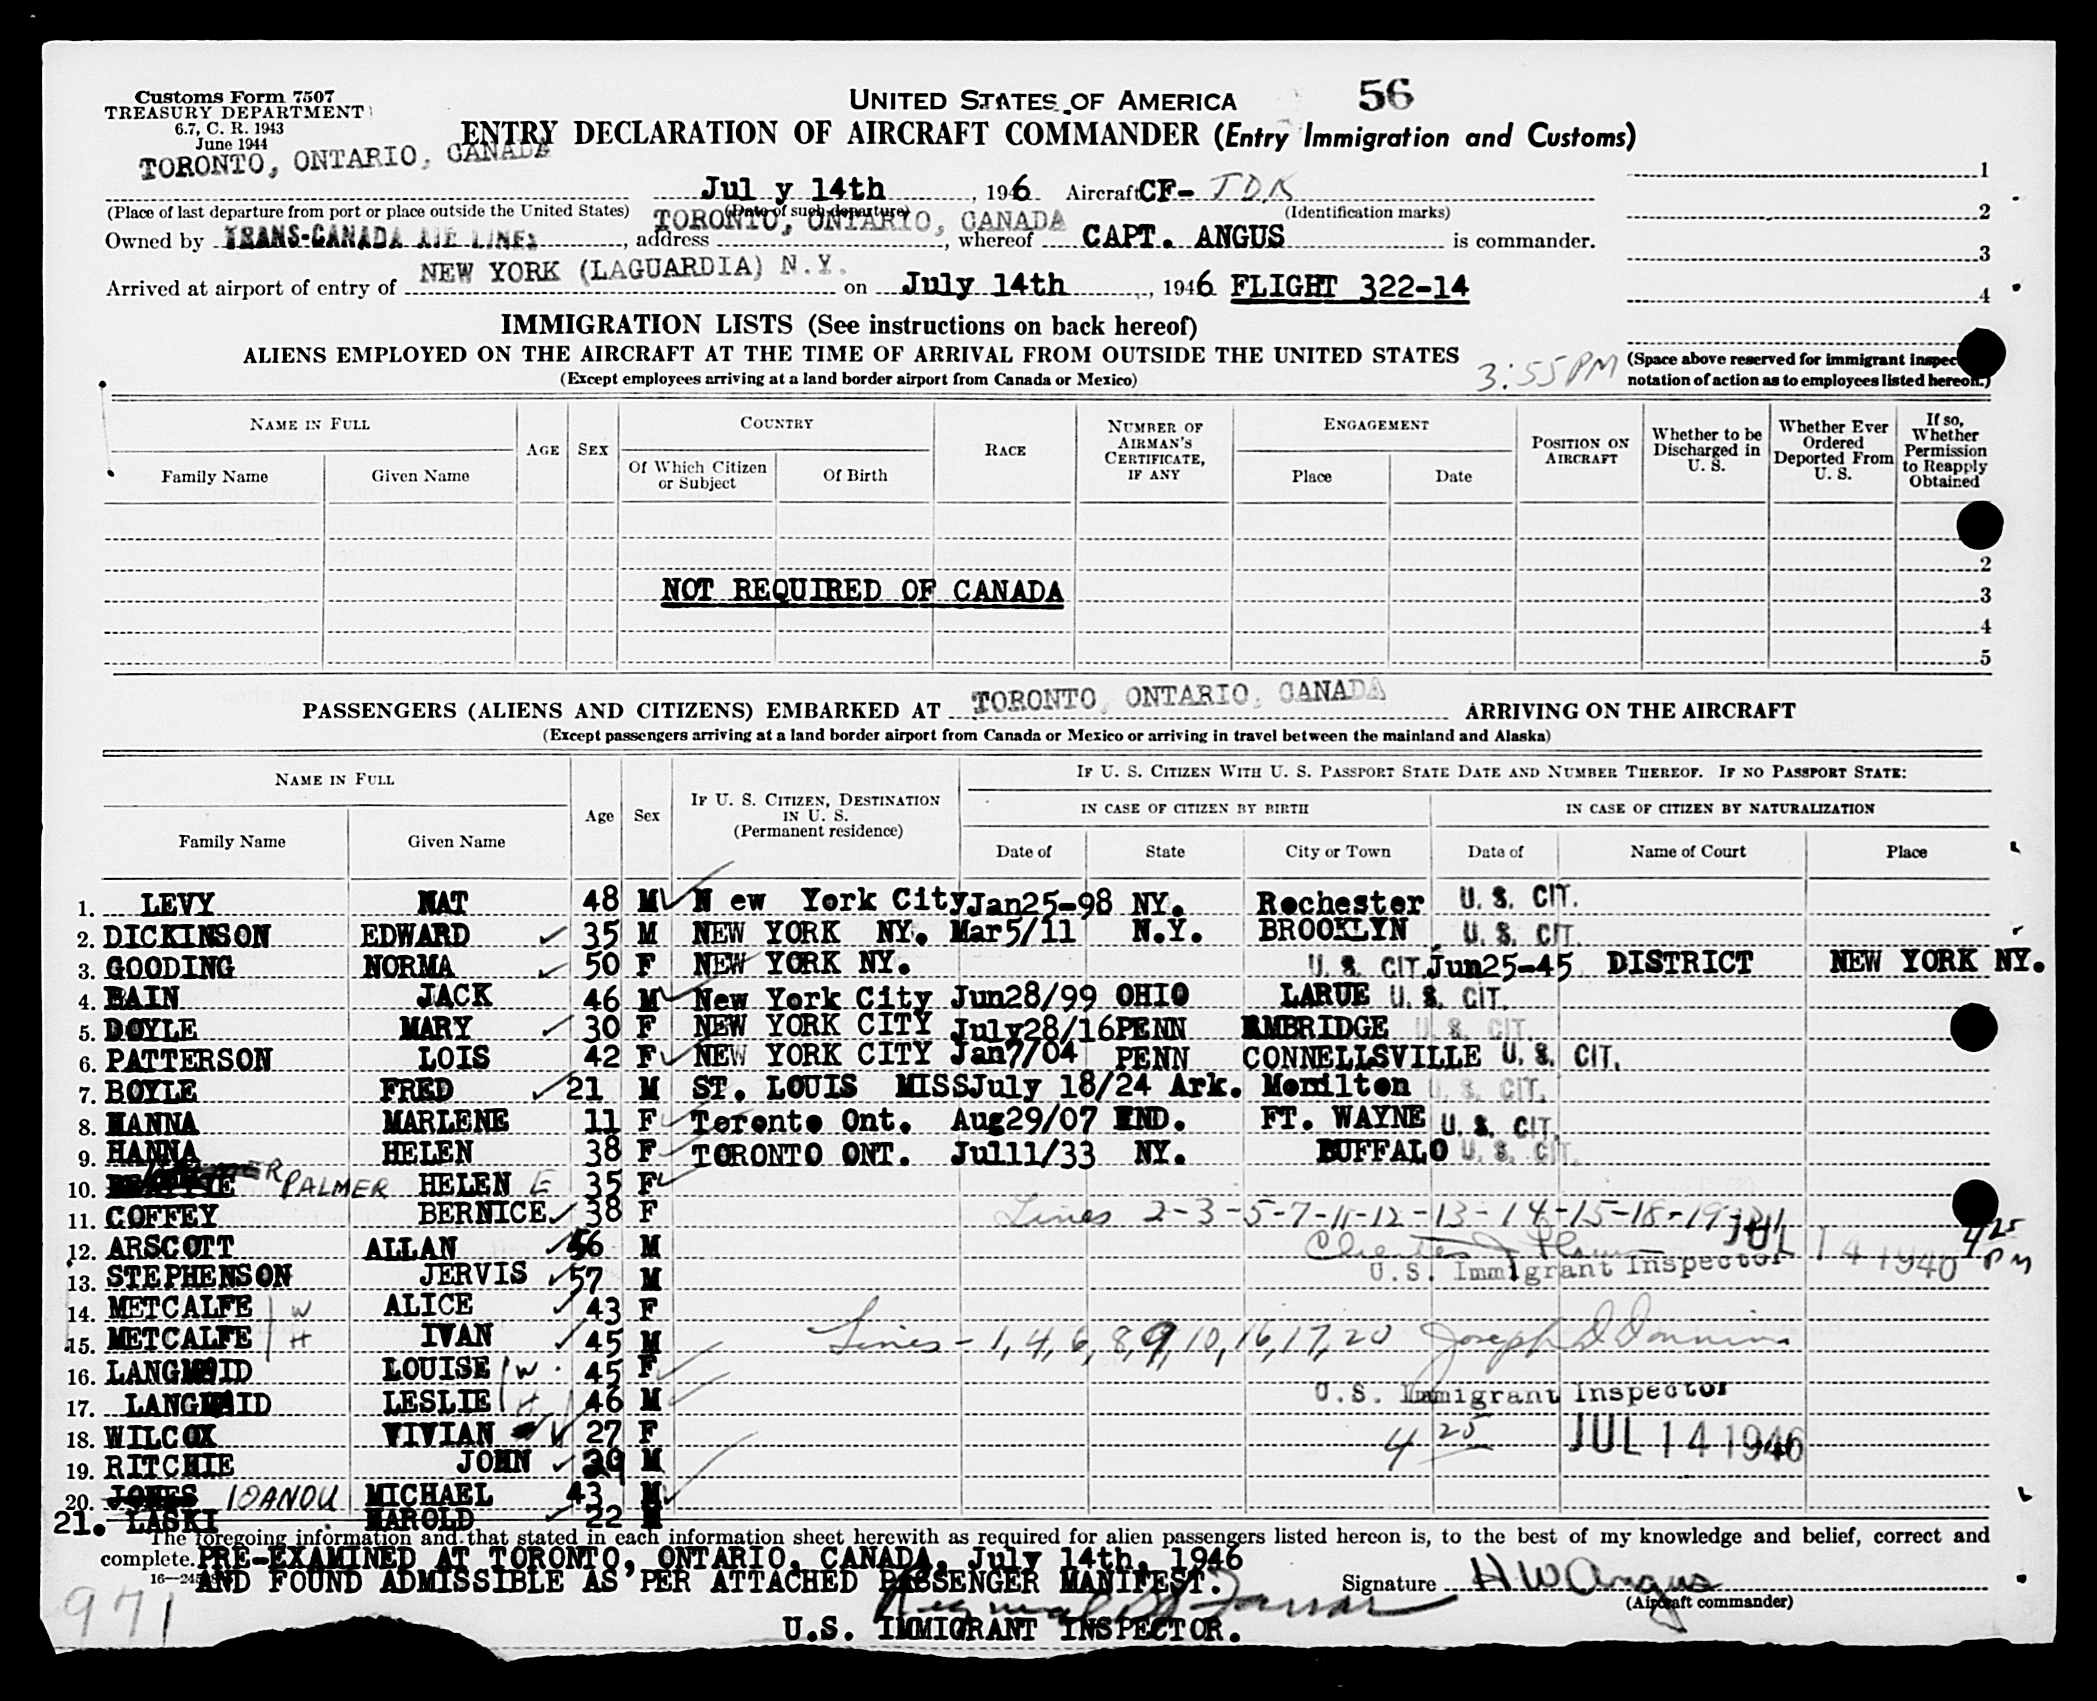 Customs Form 7507
TREASURY DEPARTMENT
6.7, C. R. 1943
June 1944
UNITED STATES OF AMERICA
56
ENTRY DECLARATION OF AIRCRAFT COMMANDER (Entry Immigration and Customs)
TORONTO, ONTARIO, CANADA
July 14th, 1946 Aircraft CF-
1
(Place of last departure from port or place outside the United States) (Date of such departure) (Identification marks)
2
Owned by TRANS-CANADA AIR LINES, address TORONTO, ONTARIO, CANADA, whereof CAPT. ANGUS is commander.
3
Arrived at airport of entry of NEW YORK (LAGUARDIA) N.Y. on July 14th, 1946 FLIGHT 322-14
4
IMMIGRATION LISTS (See instructions on back hereof)
ALIENS EMPLOYED ON THE AIRCRAFT AT THE TIME OF ARRIVAL FROM OUTSIDE THE UNITED STATES
(Except employees arriving at a land border airport from Canada or Mexico)
3:55 PM
(Space above reserved for immigrant inspec
notation of action as to employees listed hereon.)
NAME IN FULL
Family Name
Given Name
AGE
SEX
COUNTRY
Of Which Citizen or Subject
Of Birth
RACE
NUMBER OF AIRMAN'S CERTIFICATE, IF ANY
ENGAGEMENT
Place
Date
POSITION ON AIRCRAFT
Whether to be Discharged in U. S.
Whether Ever Ordered Deported From U. S.
If so, Whether Permission to Reapply Obtained
2
NOT REQUIRED OF CANADA
3
4
5
PASSENGERS (ALIENS AND CITIZENS) EMBARKED AT TORONTO, ONTARIO, CANADA ARRIVING ON THE AIRCRAFT
(Except passengers arriving at a land border airport from Canada or Mexico or arriving in travel between the mainland and Alaska)
NAME IN FULL
Family Name
Given Name
Age
Sex
IF U. S. CITIZEN, DESTINATION IN U. S. (Permanent residence)
IF U. S. CITIZEN WITH U. S. PASSPORT STATE DATE AND NUMBER THEREOF. IF NO PASSPORT STATE:
IN CASE OF CITIZEN BY BIRTH
IN CASE OF CITIZEN BY NATURALIZATION
Date of
State
City or Town
Date of
Name of Court
Place
1. LEVY NAT 48 M New York City Jan25-98 NY. Rochester U. S. CIT.
2. DICKINSON EDWARD 35 M NEW YORK NY. Mar5/11 N.Y. BROOKLYN U. S. CIT.
3. GOODING NORMA 50 F NEW YORK NY. U. S. CIT. Jun25-45 DISTRICT NEW YORK NY.
4. BAIN JACK 46 M New York City Jun28/99 OHIO LARUE U. S. CIT.
5. DOYLE MARY 30 F NEW YORK CITY July28/16 PENN AMBRIDGE U. S. CIT.
6. PATTERSON LOIS 42 F NEW YORK CITY Jan7/04 PENN CONNELLSVILLE U. S. CIT.
7. BOYLE FRED 21 M ST. LOUIS MISS July 18/24 Ark. U. S. CIT.
8. HANNA MARLENE 11 F Toronto Ont. Aug29/07 IND. FT. WAYNE U. S. CIT.
9. HANNA HELEN 38 F TORONTO ONT. Jul11/33 NY. BUFFALO U. S. CIT.
10. PALMER HELEN E 35 F
11. COFFEY BERNICE 38 F Lines 2-3-5-7-11-12-13-14-15-18-19-
12. ARSCOTT ALLAN 56 M JUL 14 1946 4 25 PM
13. STEPHENSON JERVIS 57 M U.S. Immigrant Inspector
14. METCALFE W ALICE 43 F
15. METCALFE H IVAN 45 M Lines - 1, 4, 6, 8, 9, 10, 16, 17, 20 Joseph
16. LANGMAID LOUISE W 45 F
17. LANGMAID LESLIE H 46 M U.S. Immigrant Inspector
18. WILCOX VIVIAN 27 F 4 25 JUL 14 1946
19. RITCHIE JOHN M
20. JONES IOANOU MICHAEL 43 M
21. LASKI HAROLD 22 M
The foregoing information and that stated in each information sheet herewith as required for alien passengers listed hereon is, to the best of my knowledge and belief, correct and
complete. PRE-EXAMINED AT TORONTO, ONTARIO, CANADA, July 14th, 1946
AND FOUND ADMISSIBLE AS PER ATTACHED PASSENGER MANIFEST.
Signature H W Angus
(Aircraft commander)
971
U.S. IMMIGRANT INSPECTOR.